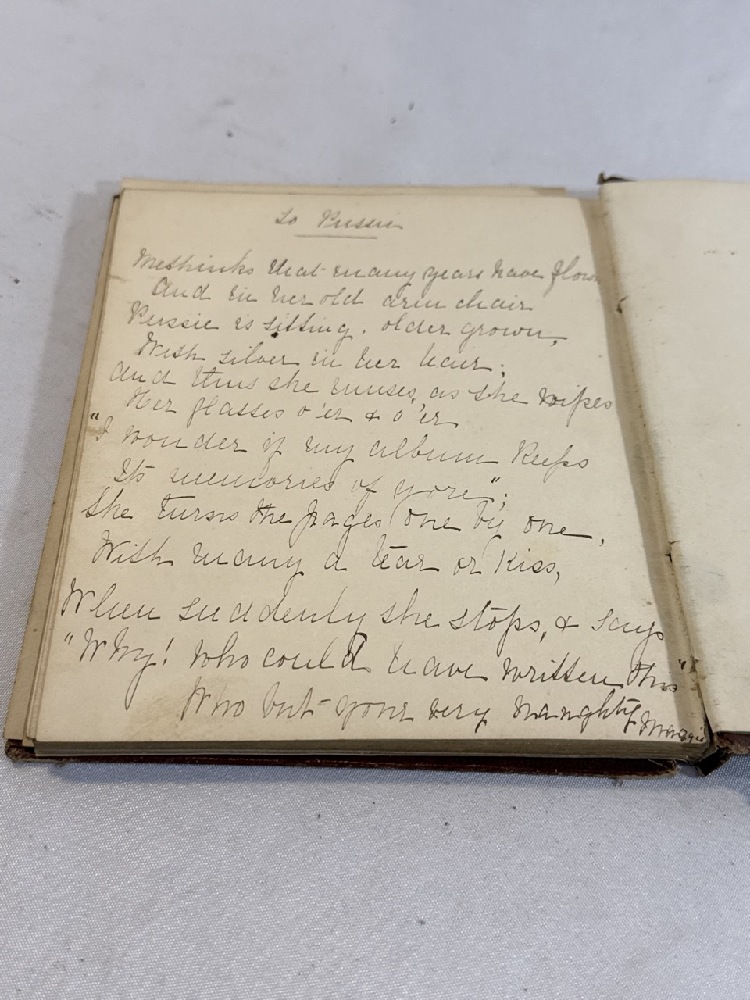 To Pussie
Methinks that many years have flown
And in her old arm chair
Pussie is sitting, older grown,
With silver in her hair;
And thus she muses, as she wipes
Her glasses o'er & o'er
"I wonder if my album keeps
Its memories of yore";
She turns the pages one by one,
With many a tear or kiss,
When suddenly she stops, & says
"Why! who could have written this"
Who but your very naughty Maggie